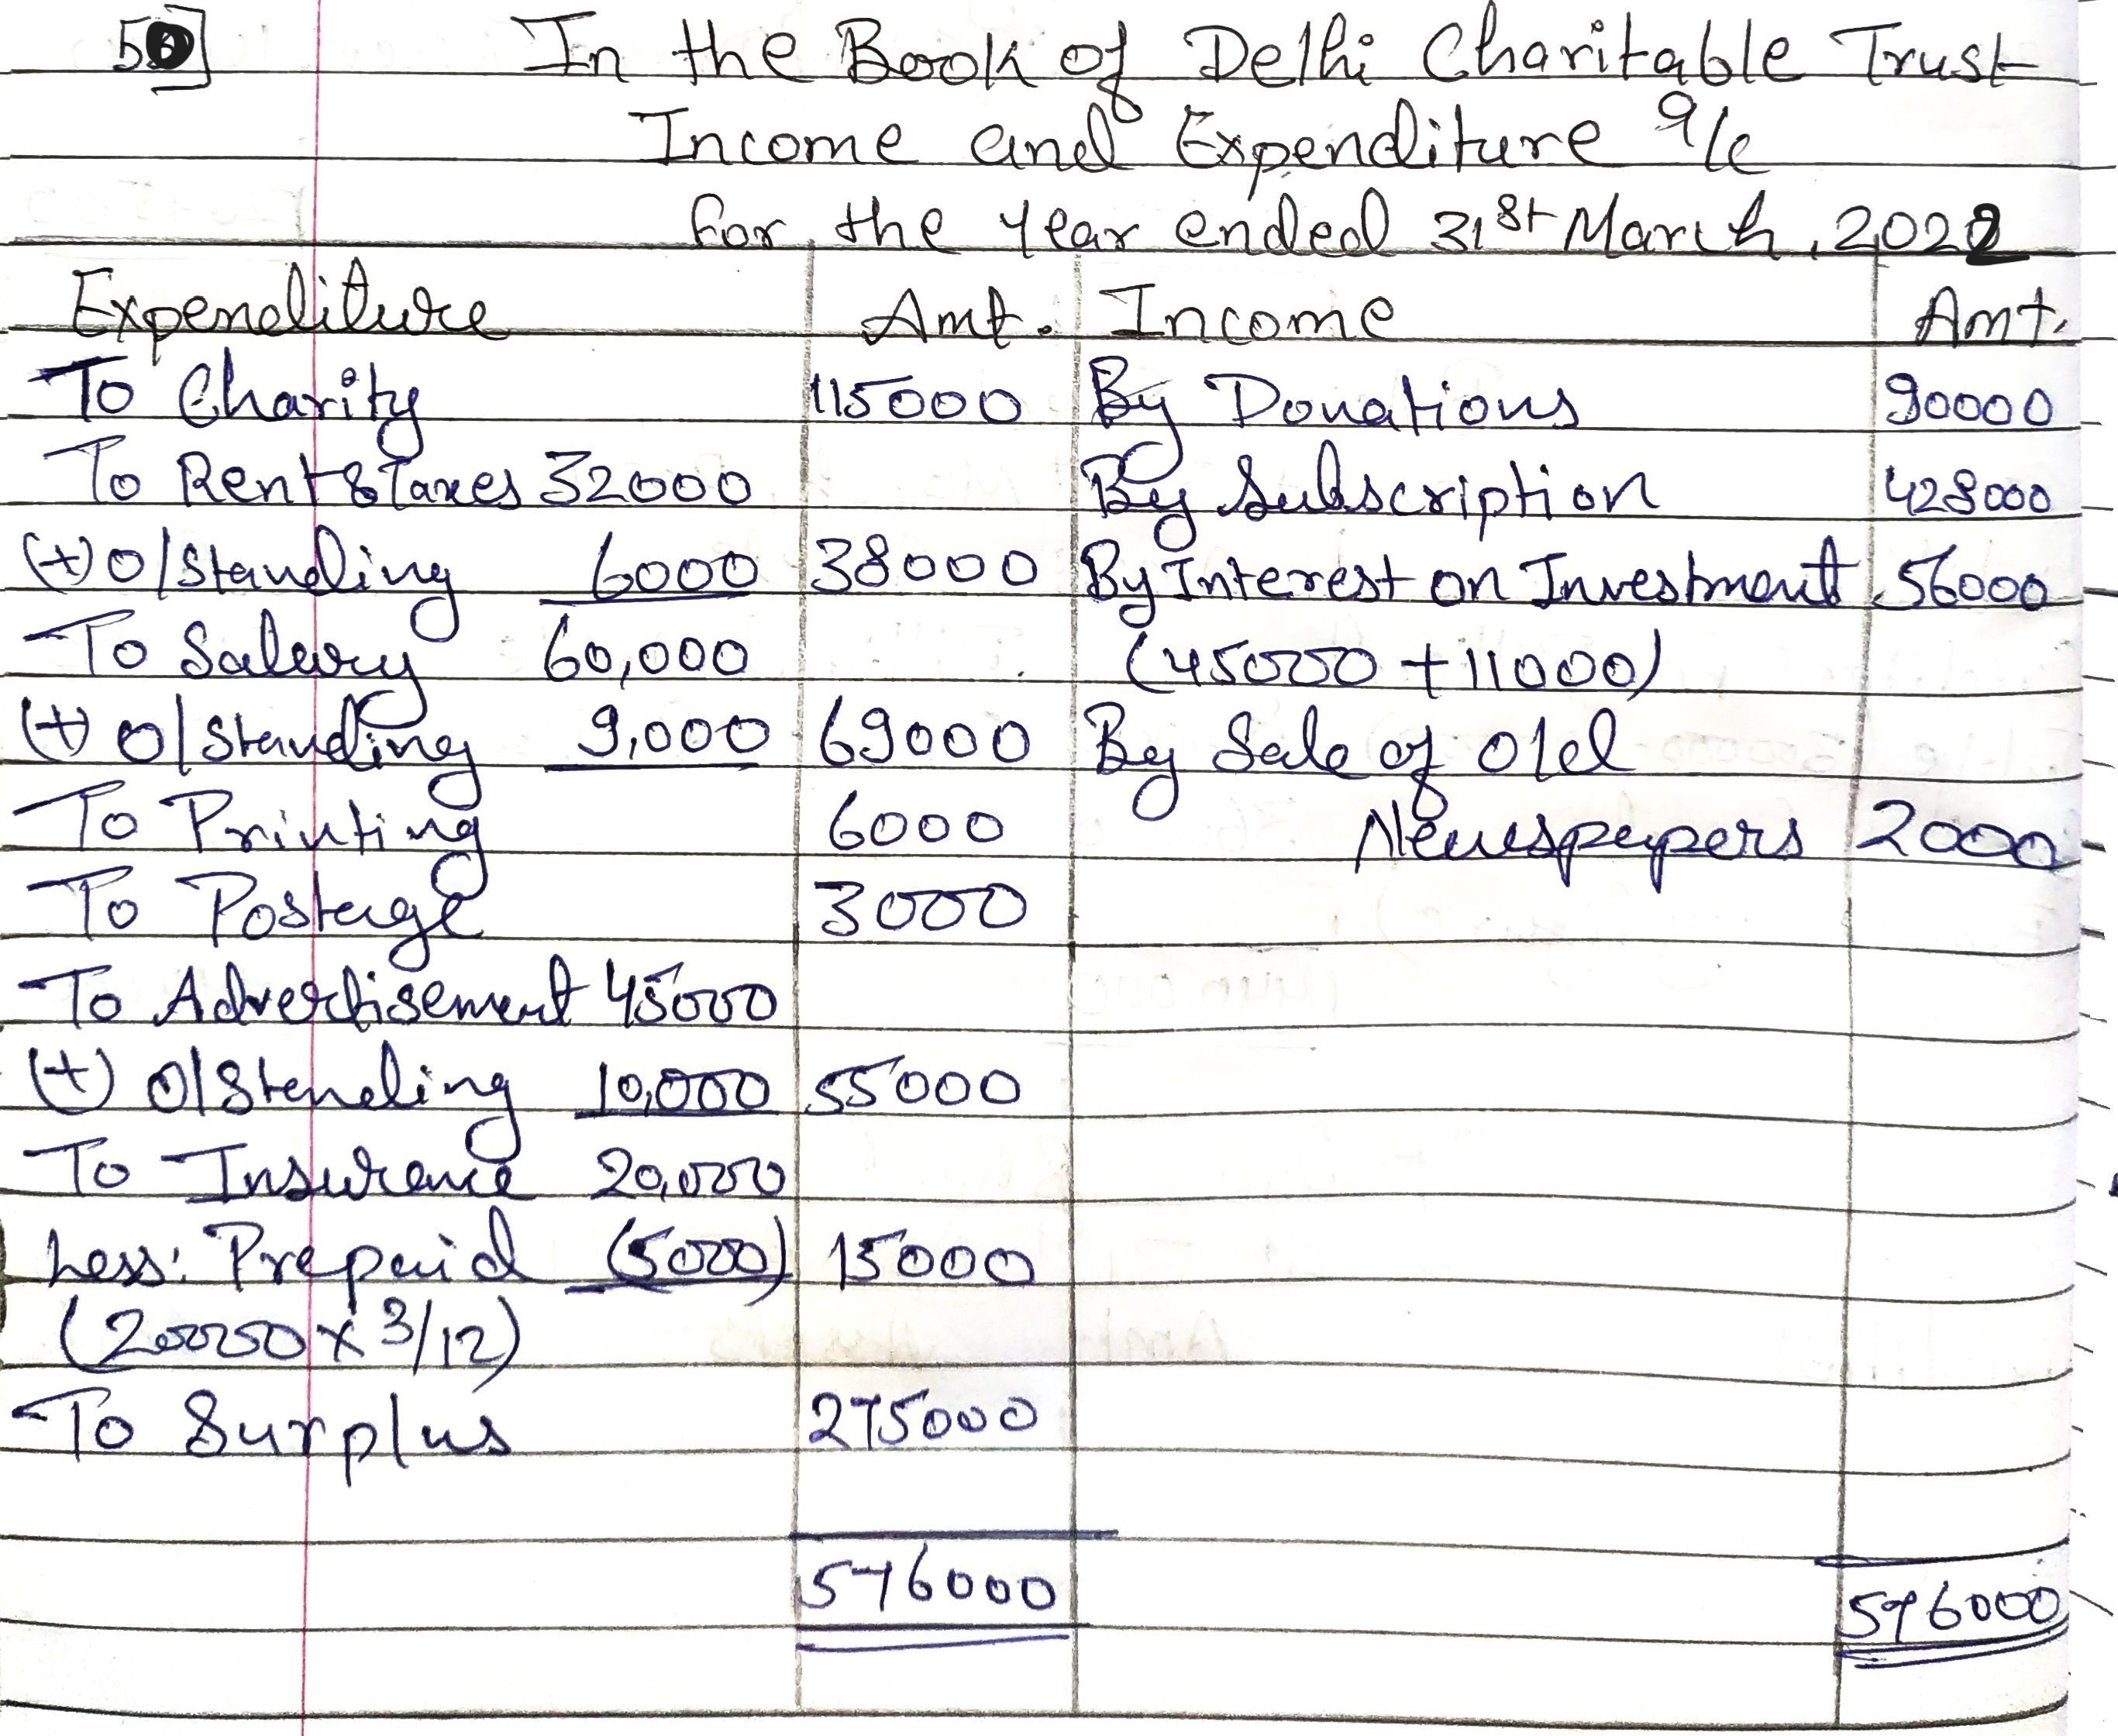 5]
In the Book of Delhi Charitable Trust
Income and Expenditure a/c
for the year ended 31st March, 2022
Expenditure Amt. Income Amt.
To Charity 115000 By Donations 90000
To Rent & Taxes 32000 By Subscription 428000
(+) O/Standing 6000 38000 By Interest on Investment 56000
To Salary 60,000 (45000 + 11000)
(+) O/Standing 9,000 69000 By Sale of Old
To Printing 6000 Newspapers 2000
To Postage 3000
To Advertisement 45000
(+) O/Standing 10,000 55000
To Insurance 20,000
Less: Prepaid (5000) 15000
(20000 x 3/12)
To Surplus 275000
576000 576000